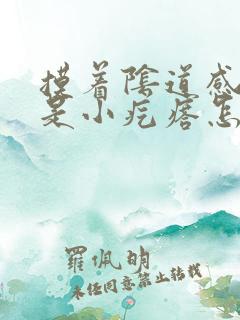 摸着陰道感
是小疙瘩怎
羅佩明
未经同意禁止转载